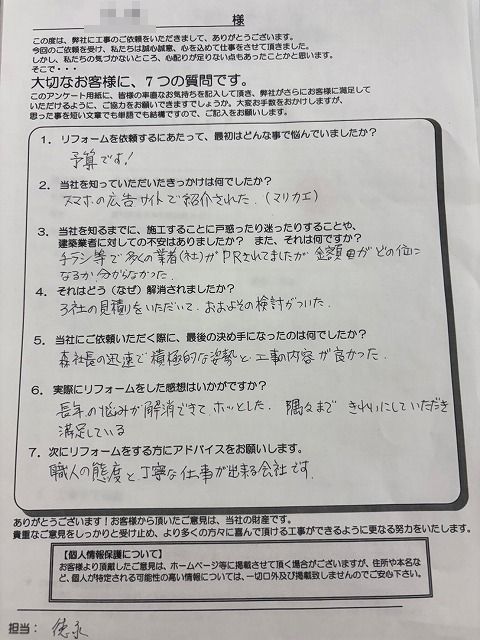 様
この度は、弊社に工事のご依頼をいただきまして、ありがとうございます。
今回のご依頼を受け、私たちは誠心誠意、心を込めて仕事をさせて頂きました。
しかし、私たちの気づかないところ、心配りが足りない点もあったことかと思います。
そこで・・・
大切なお客様に、7つの質問です。
このアンケート用紙に、皆様の率直なお気持ちを記入して頂き、弊社がさらにお客様に満足して
いただけるように、ご協力をお願いできますでしょうか。大変お手数をおかけしますが、
思った事を短い文章でも単語でも結構ですので、ご記入をお願いします。
1. リフォームを依頼するにあたって、最初はどんな事で悩んでいましたか?
予算です!
2. 当社を知っていただいたきっかけは何でしたか?
スマホの広告サイトで紹介された.(マリカエ)
3. 当社を知るまでに、施工することに戸惑ったり迷ったりすることや、
建築業者に対しての不安はありましたか? また、それは何ですか?
チラシ等で多くの業者(社)がPRされてましたが 金額面がどの位に
なるか分からなかった.
4. それはどう(なぜ)解消されましたか?
3社の見積りをいただいて、おおよその検討がついた.
5. 当社にご依頼いただく際に、最後の決め手になったのは何でしたか?
森社長の迅速で積極的な姿勢と工事の内容が良かった.
6. 実際にリフォームをした感想はいかがですか?
長年の悩みが解消できて ホッとした. 隅々まで きれいにしていただき
満足している
7. 次にリフォームをする方にアドバイスをお願いします。
職人の態度と丁寧な仕事が出来る会社です.
ありがとうございます!お客様から頂いたご意見は、当社の財産です。
貴重なご意見をしっかりと受け止め、より多くの方々に喜んで頂ける工事ができるように更なる努力をいたします。
【個人情報保護について】
お客様より頂戴したご意見は、ホームページ等に掲載させて頂く場合がございますが、住所や本名な
ど、個人が特定される可能性の高い情報については、一切口外及び掲載致しませんのでご安心下さい。
担当: 徳永